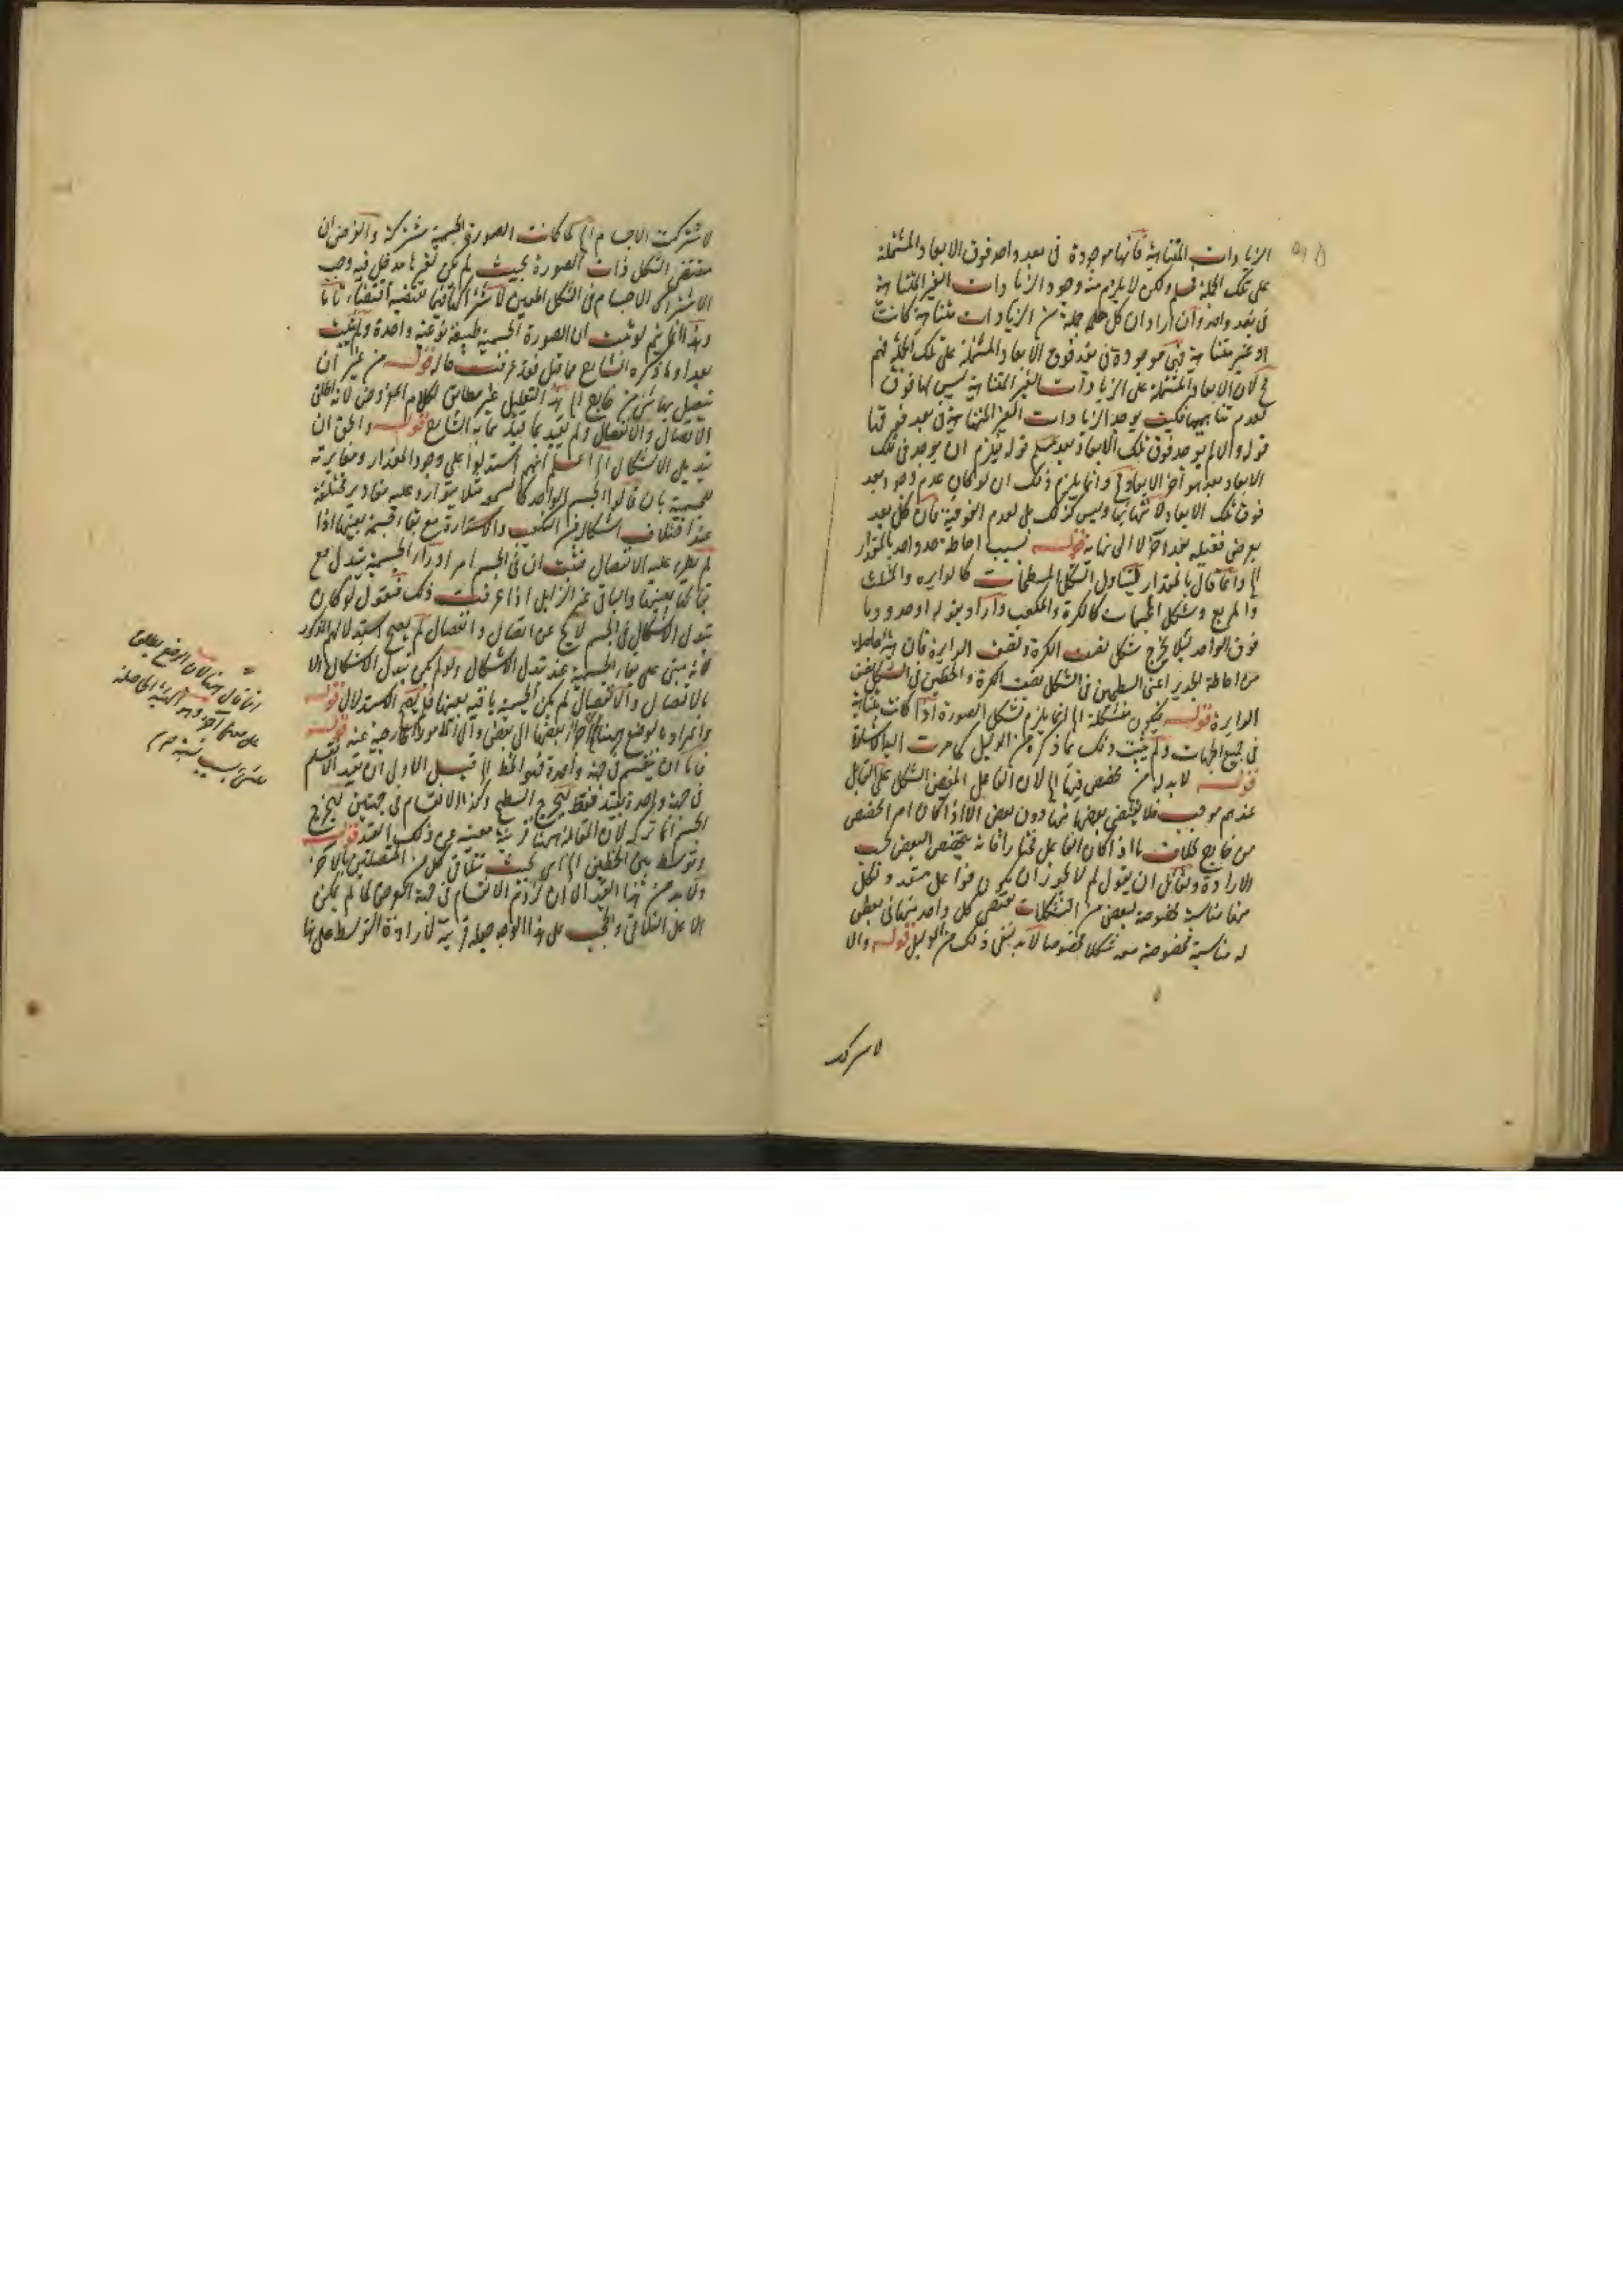 الزيادات المتناهية فانها موجودة فى بعد واحد فوق الابعاد المشتملة
على تلك الجملة فمسلم ولكن لا يلزم منه وجود الزيادات الغير المتناهية
فى بعد واحد وان اراد ان كل جملة جملة من الزيادات متناهية كانت
او غير متناهية فهى موجودة فى بعد فوق الابعاد المشتملة على تلك الجملة فهو
مم لان الابعاد المشتملة على الزيادات الغير المتناهية ليس لها فوق
لعدم تناهيها فكيف يوجد الزيادات الغير المتناهية فى بعد فوقها
قوله والا لم يوجد فوق تلك الابعاد بعد قوله فيلزم ان يوجد فى تلك
الابعاد بعد هو آخر الابعاد وانما يلزم ذلك ان لو كان عدم وجود بعد
فوق تلك الابعاد لانتهائها وليس كذلك بل لعدم الفوقية فان كل بعد
يفرض فقبله بعد آخر لا الى نهاية قوله بسبب احاطة حد واحد بالمقدار
الخ وانما قال بالمقدار ليتناول الشكل المسطحات كالدايرة والمثلث
والمربع وشكل المجسمات كالكرة والمكعب واراد بقوله او حدود ما
فوق الواحد لئلا يخرج شكل نصف الكرة ونصف الدايرة فانه هيئة حاصلة
من احاطة الحدين اعنى السطحين فى الشكل نصف الكرة والخطين فى الشكل نصف
الدايرة قوله فيكون متشكلة الخ انما يلزم تشكل الصورة اذا كانت متناهية
فى جميع الجهات ولم يثبت ذلك بما ذكره من الدليل كما مرت اليه الاشارة
قوله لا بد له من مخصص فيها الخ لان الفاعل المفيض للشكل على القابل
عندهم موجب فلا يقتضى بعضها دون بعض الا اذا كان امر المخصص
من خارج بخلاف ما اذا كان الفاعل مختارا فانه يخصص البعض بحسب
الارادة ولقائل ان يقول لم لا يجوز ان يكون فواعل متعددة ولكل
منها مناسبة مخصوصة لبعض من التشكلات يقتضى كل واحد منها فى بعض
له مناسبة مخصوصة معه شكلا مخصوصا لا بد لنفى ذلك من الدليل قوله والا
لاشتركت
لاشتركت الاجسام الخ لما كانت الصورة الجسمية مشتركة والفرض ان
مقتضى الشكل ذات الصورة بحيث لم يكن لغيرها مدخل فيه وجب
الاشتراك الاجسام فى الشكل المعين لاشتراكها فيما يقتضيه اقتضاء تاما
وهذا انما يتم لو ثبت ان الصورة الجسمية طبيعة نوعية واحدة ولم يثبت
بعد وما ذكره الشارح فيما قبل فقد عرفت حاله قوله من غير ان
يتصل بها شئ من خارج الخ هذا التعليل غير مطابق لكلام المعروض لانه اطلق
الاتصال والانفصال ولم يقيد بما قيد به الشارح قوله والحق ان
تبديل الاشكال الخ اعلم انهم استدلوا على وجود المقدار ومغايرته
للجسمية بان قالوا الجسم الواحد كالشمعة مثلا يتوارد عليه مقادير مختلفة
عند اختلاف اشكاله من التكعب والاستدارة مع بقاء جسمية بعينها اذا
لم يطرء عليه الانفصال فثبت ان فى الجسم امر اوراء الجسمية يتبدل مع
بقائها بعينها والباقى غير الزايل اذا عرفت ذلك فنقول لو كان
تبدل الاشكال فى الجسم لا يخ عن اتصال وانفصال لم يصح استدلالهم المذكور
لانه مبنى على بقاء الجسمية عند تبدل الاشكال ولو لم يكن تبدل الاشكال الا
بالاتصال والانفصال لم يكن الجسمية باقية بعينها فلم يصح الاستدلال قوله
والمراد بالوضع ههنا اجزائه بعضها الى بعض والى الامور الخارجية عنه قوله
فاما ان ينقسم فى جهة واحدة فهو الخط الخ قيل الاولى ان يقيد الانقسام
فى جهة واحدة بقيد فقط ليخرج السطح وكذا الانقسام فى جهتين ليخرج
الجسم انما تركه لان المقابلة ههنا قرينة معينة عن ذلك القيد قوله
وتوسط بين الخطين الخ اى بحيث يتلاقى كل من المتصلتين بالآخر
ولا بد من هذا القيد الا ان لزوم الانقسام فى جهة العرض لما لم يكن
الا على التلاقى والحجب على هذا الوجه جعله قرينة لارادة التوسط على هذا
انما قال ههنا لان الوضع يطلق
على معنى آخر وهو الهيئة الحاصلة
للشئ بسبب نسبة